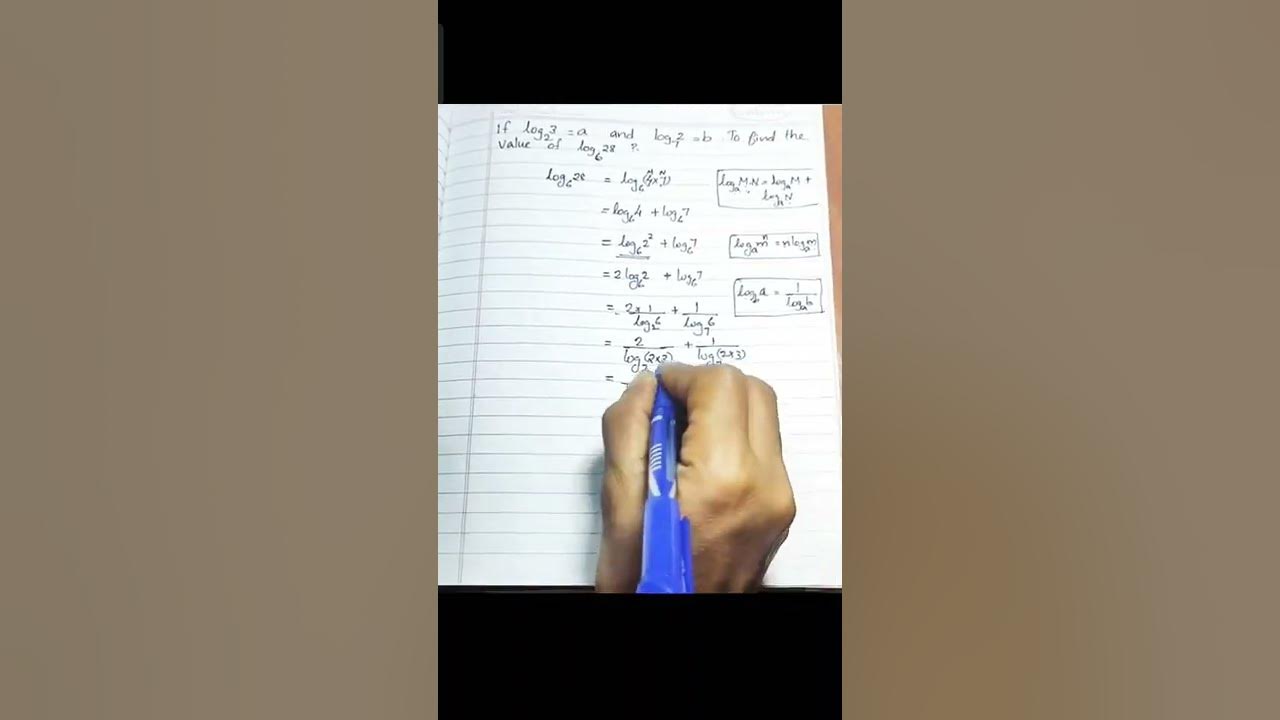 If log₂3 = a and log₇2 = b. To find the
value of log₆28 ?
log₆28 = log₆(4×7) M N
logₐM·N = logₐM +
logₐN
= log₆4 + log₆7
= log₆2² + log₆7
logₐmⁿ = n logₐm
= 2 log₆2 + log₆7
log_b a = 1/logₐb
= 2×1/log₂6 + 1/log₇6
= 2/log₂(2×3) + 1/log₇(2×3)
=